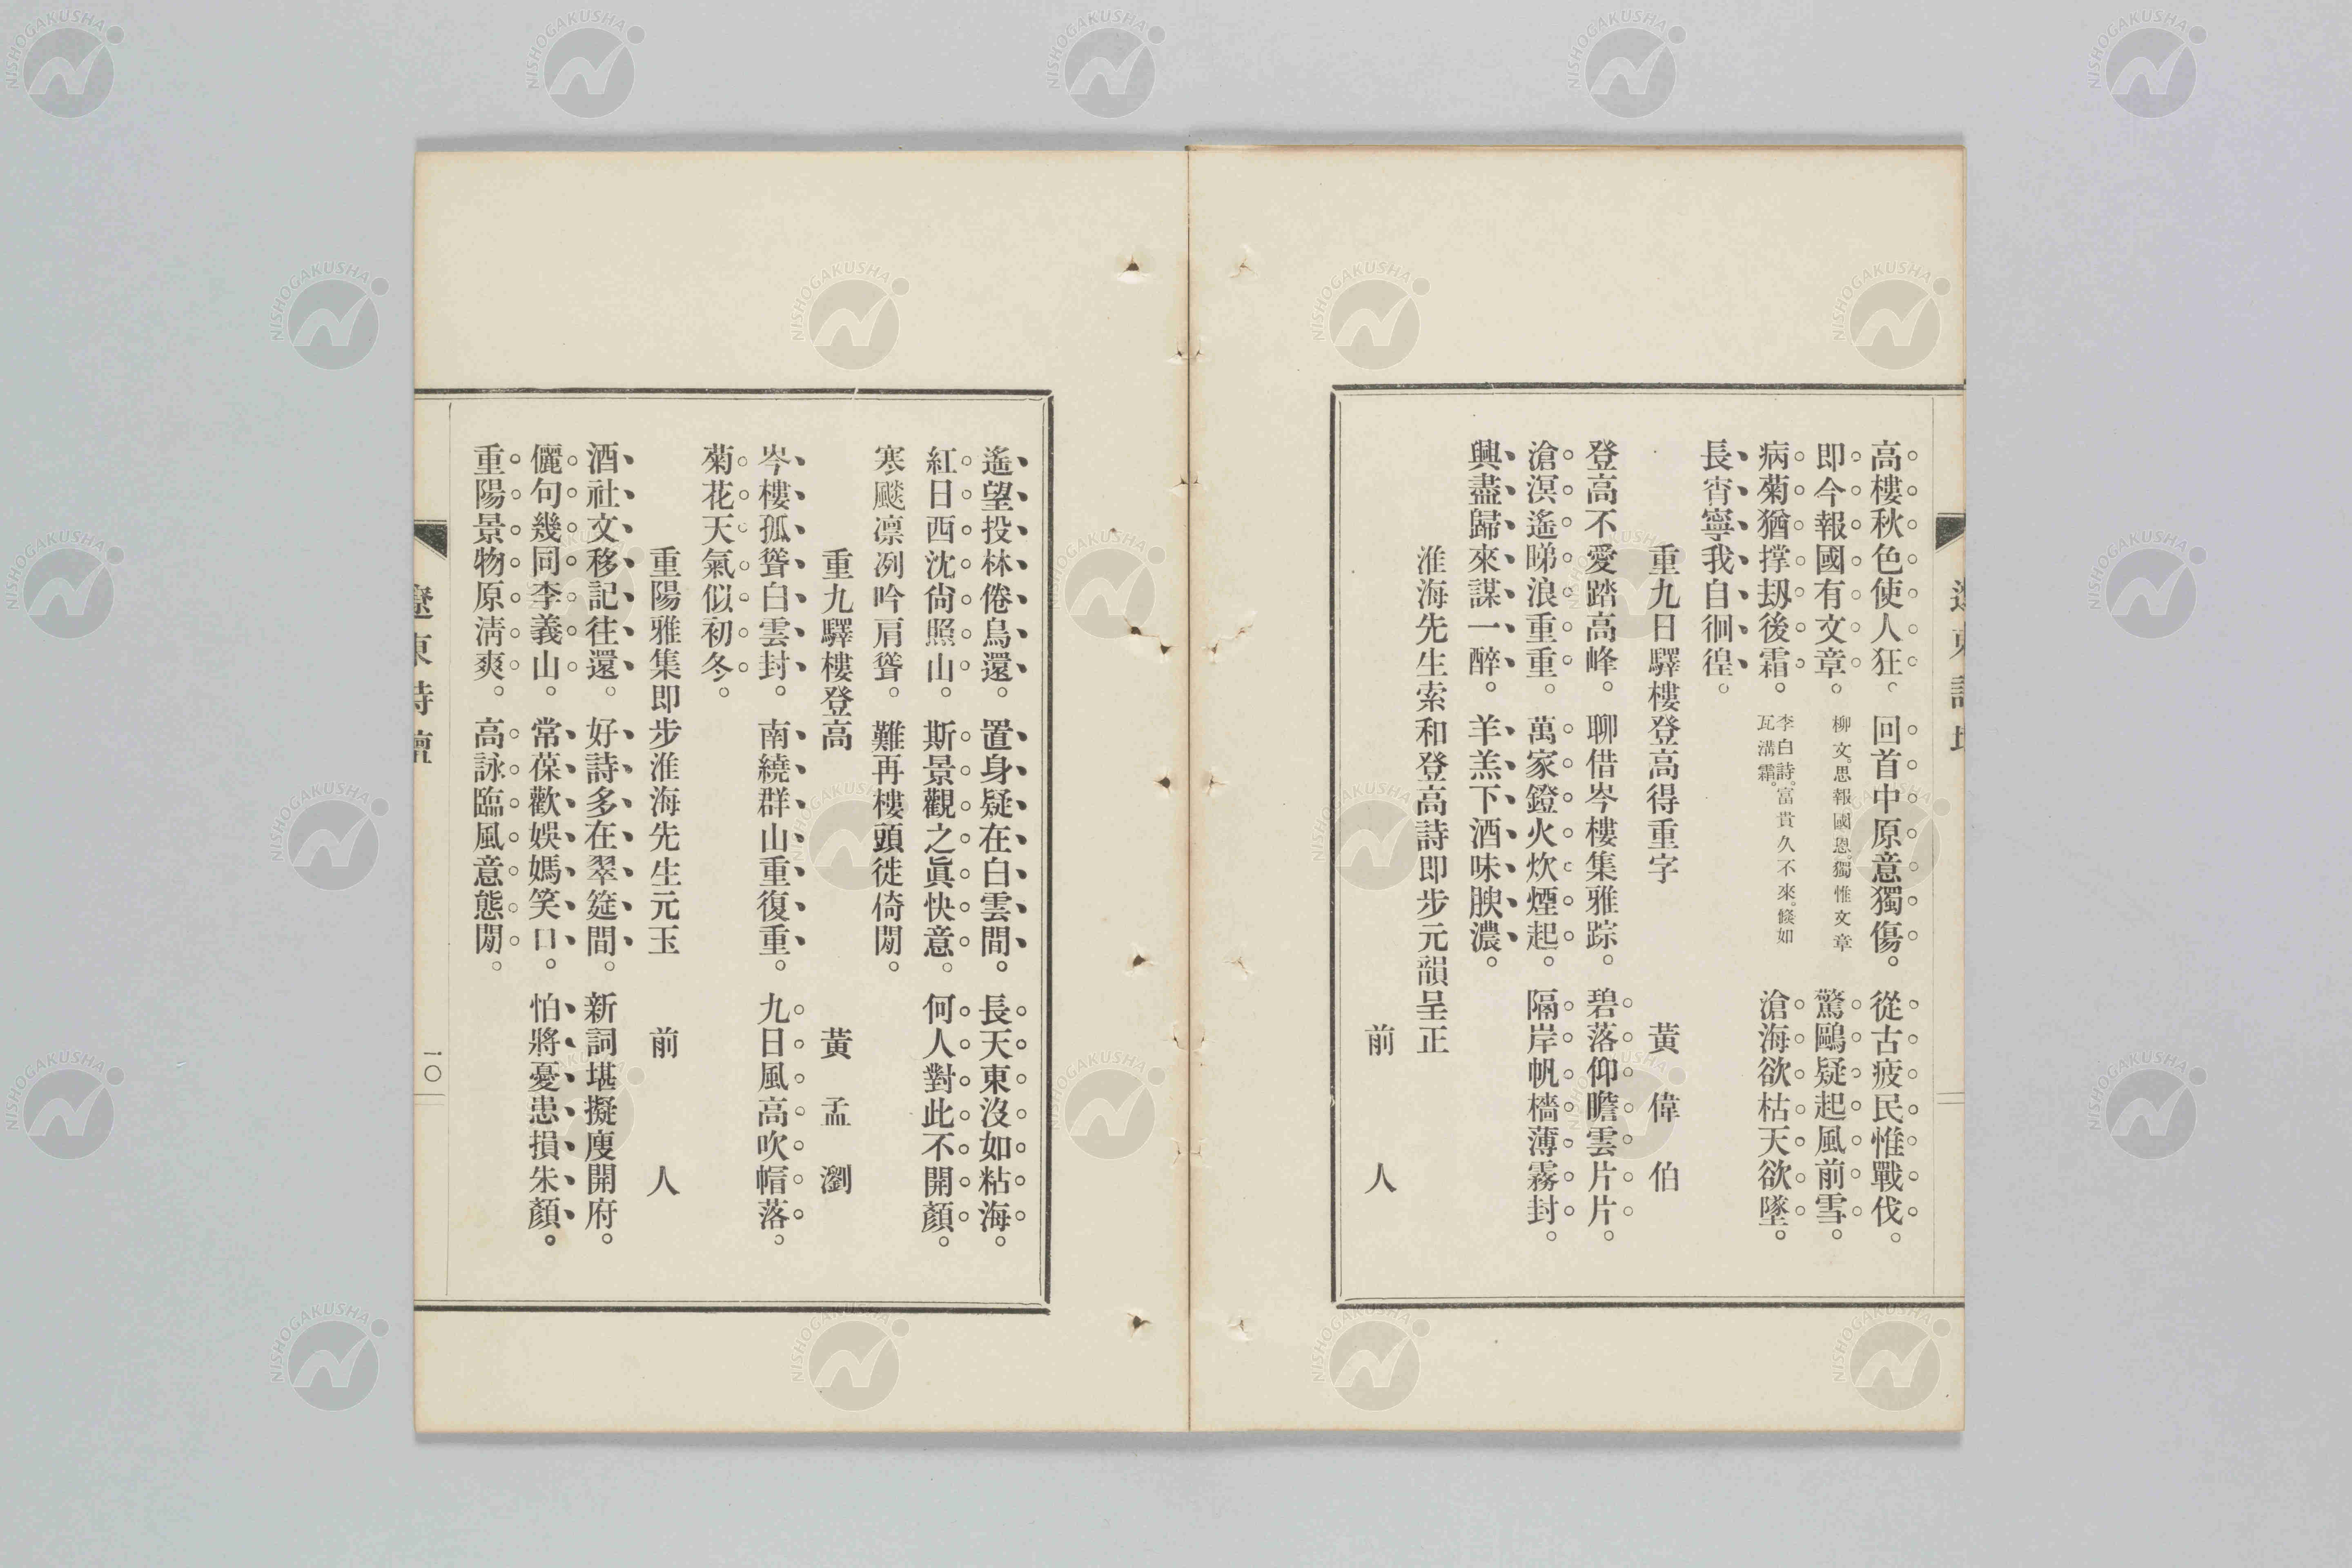 高樓秋色使人狂。回首中原意獨傷。從古疲民惟戰伐。
即今報國有文章。柳文。思報國恩。獨惟文章驚鷗疑起風前雪。
病菊猶撑刼後霜。李白詩。富貴久不來。倏如
瓦溝霜。滄海欲枯天欲墜。
長宵寧我自徊徨。
重九日驛樓登高得重字 黃偉伯
登高不愛踏高峰。聊借岑樓集雅踪。碧落仰瞻雲片片。
滄溟遙睇浪重重。萬家鐙火炊煙起。隔岸帆檣薄霧封。
興盡歸來謀一醉。羊羔下酒味腴濃。
淮海先生索和登高詩即步元韻呈正
前人
遙望投林倦鳥還。置身疑在白雲間。長天東沒如粘海。
紅日西沈尙照山。斯景觀之眞快意。何人對此不開顏。
寒飈凛冽吟肩聳。難再樓頭徙倚閒。
重九驛樓登高 黃孟瀏
岑樓孤聳白雲封。南繞群山重復重。九日風高吹帽落。
菊花天氣似初冬。
重陽雅集即步淮海先生元玉 前人
酒社文移記往還。好詩多在翠筵間。新詞堪擬庾開府。
儷句幾同李義山。常葆歡娛嫣笑口。怕將憂患損朱顏。
重陽景物原淸爽。高詠臨風意態閒。
遼東詩壇
一〇
NISHOGAKUSHA